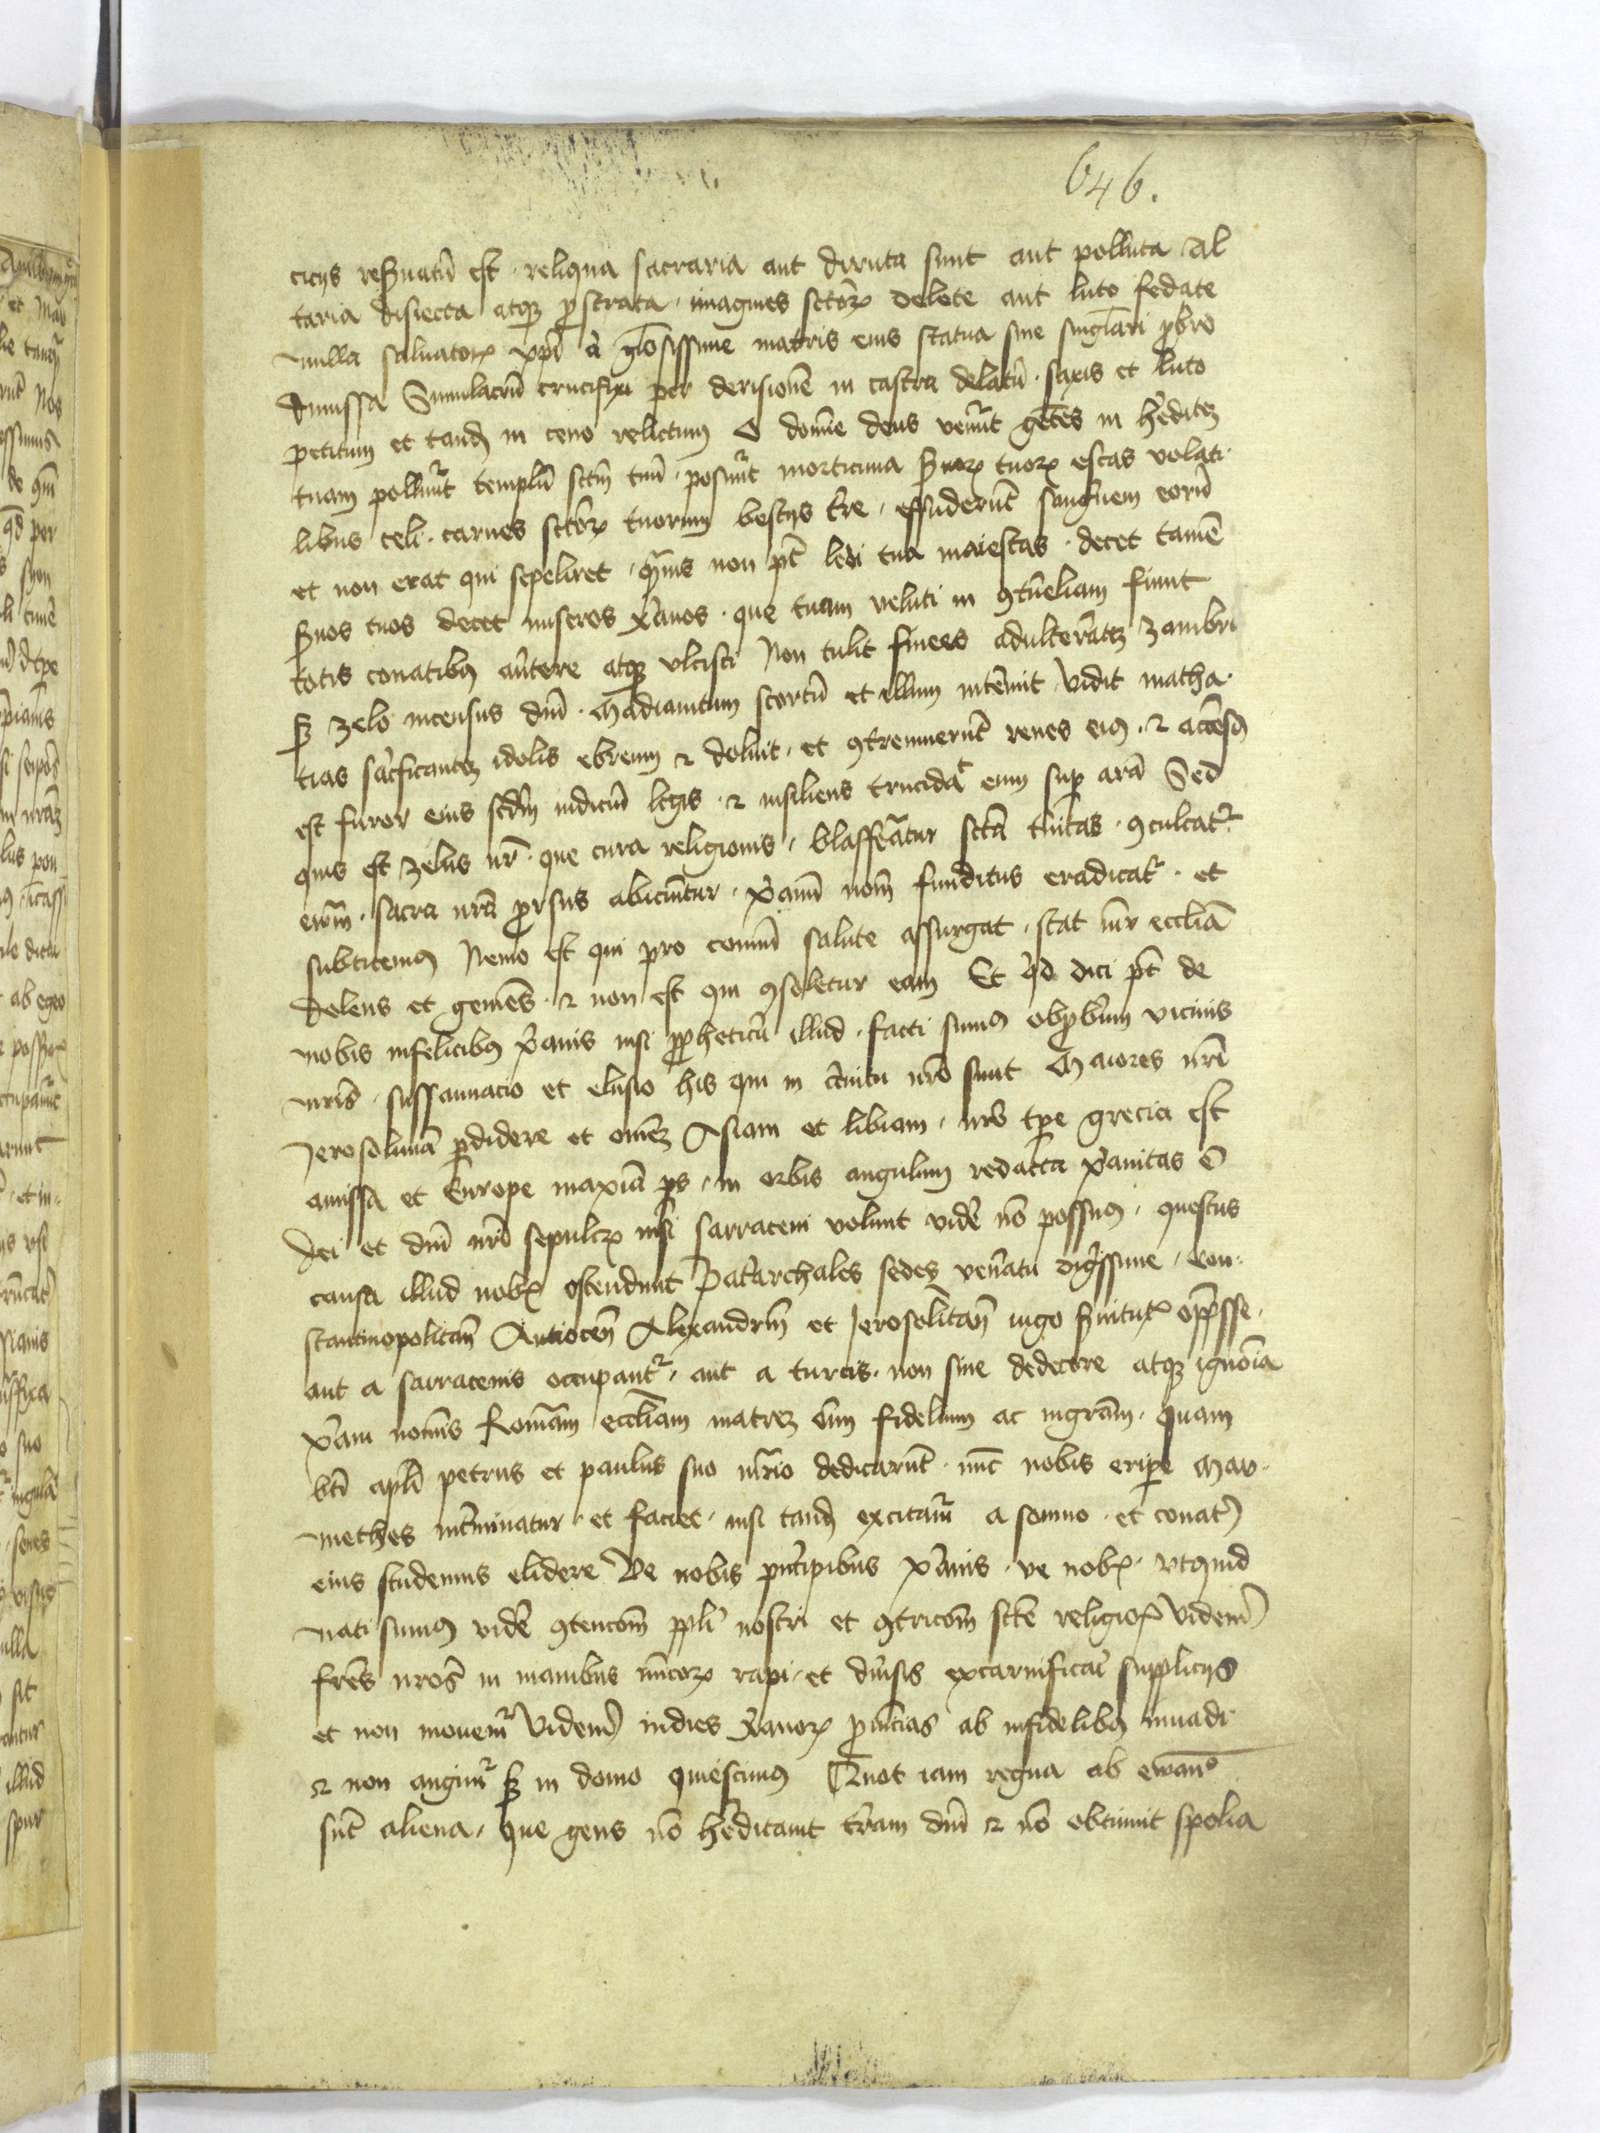 646.
cijs reservatu est . reliqua sacraria aut diruta sunt aut polluta Al
taria disiecta atque prostrata . imagines sctorum delete aut luto fedate
nulla saluatoris xpi et gloosissime matris eius statua sine singlari probro
dimissa Simulacru crucifixi per derisione in castra delatu . saxis et luto
petitum et tandem in ceno relictum O domine deus venerunt getes in hereditez
tuam polluerunt templu sctm tuu . posuerunt morticina servorum tuorum escas volati
libus celi . carnes sctorum tuorum bestijs tre . effuderunt sanguinem eoru
et non erat qui sepeliret . quamuis non pt ledi tua maiestas . decet tame
seruos tuos decet miseros xanos . que tuam veluti in contueliam fiunt
totis conatibus auertere atque vlcisci Non tulit finees adulterante zambri
sed zelo incensus dni . Madianitum scortu et illum interemit . vidit matha
tias sacrificantem idolis ebreum et doluit . et contremuerunt renes eius . et accensus
est furor eius scdm iudiciu legis . et insiliens trucidat eum super ara Sed
quis est zelus nr . que cura religionis . blasfematur scta trinitas . conculcatur
ewam . sacra nra prorsus abiciuntur . xanu nom funditus eradicatur . et
subticemus Nemo est qui pro comuni salute assurgat . stat mr ecclia
dolens et gemens . et non est qui consoletur eam Et quid dici pt de
nobis infelicibus xanis nisi propheticu illud . facti sumus obprobrium vicinis
nris . subsannacio et elusio his qui in circuitu nro sunt Maiores nri
Jerosolima perdidere et omnez Asiam et libiam . nro tpe grecia est
amissa et Europe maxia ps . in orbis angulum redacta xanitas e
dei et dni nri sepulcrum nisi sarraceni volunt videre no possumus . questus
causa illud nobis ostendunt Patriarchales sedes veneratu dignissime . Con
stantinopolitan Antiocen Alexandrin et Jerosolitan iugo seruitutis oppresse .
aut a sarracenis occupantur . aut a turcis . non sine dedecore atque ignomia
xani nominis Romam eccliam matrez oim fidelium ac mgram . quam
bti apli petrus et paulus suo mrio dedicarunt . nuc nobis eripere Mau
methes interminatur . et faciet . nisi tandem excitamur a somno . et conatus
eius studemus elidere Ve nobis principibus xanis . ve nobis . vtquid
nati sumus videre contricom ppli nostri et contricom scte religionis videmus
fres nros in manibus inicorum rapi . et diuersis excarnificari supplicijs
et non mouemur Videmus indies xanorum prouincias ab infidelibus inuadi
et non angimur sed in domo quiescimus Quot iam regna ab ewano
sunt aliena . que gens no hereditauit terram dni et no obtinuit spolia